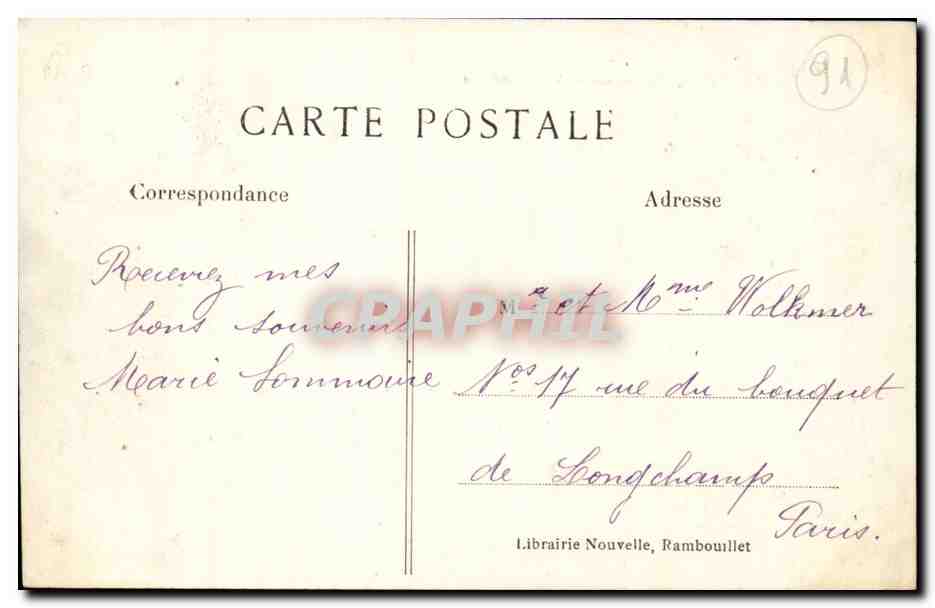 91
CARTE POSTALE
Correspondance
Adresse
Recevez mes
bons souvenirs
Marie
CPAPHIL
Mr et Mme Wolkmer
Nos 17 rue du bouquet
de Longchamps
Paris.
Librairie Nouvelle, Rambouillet